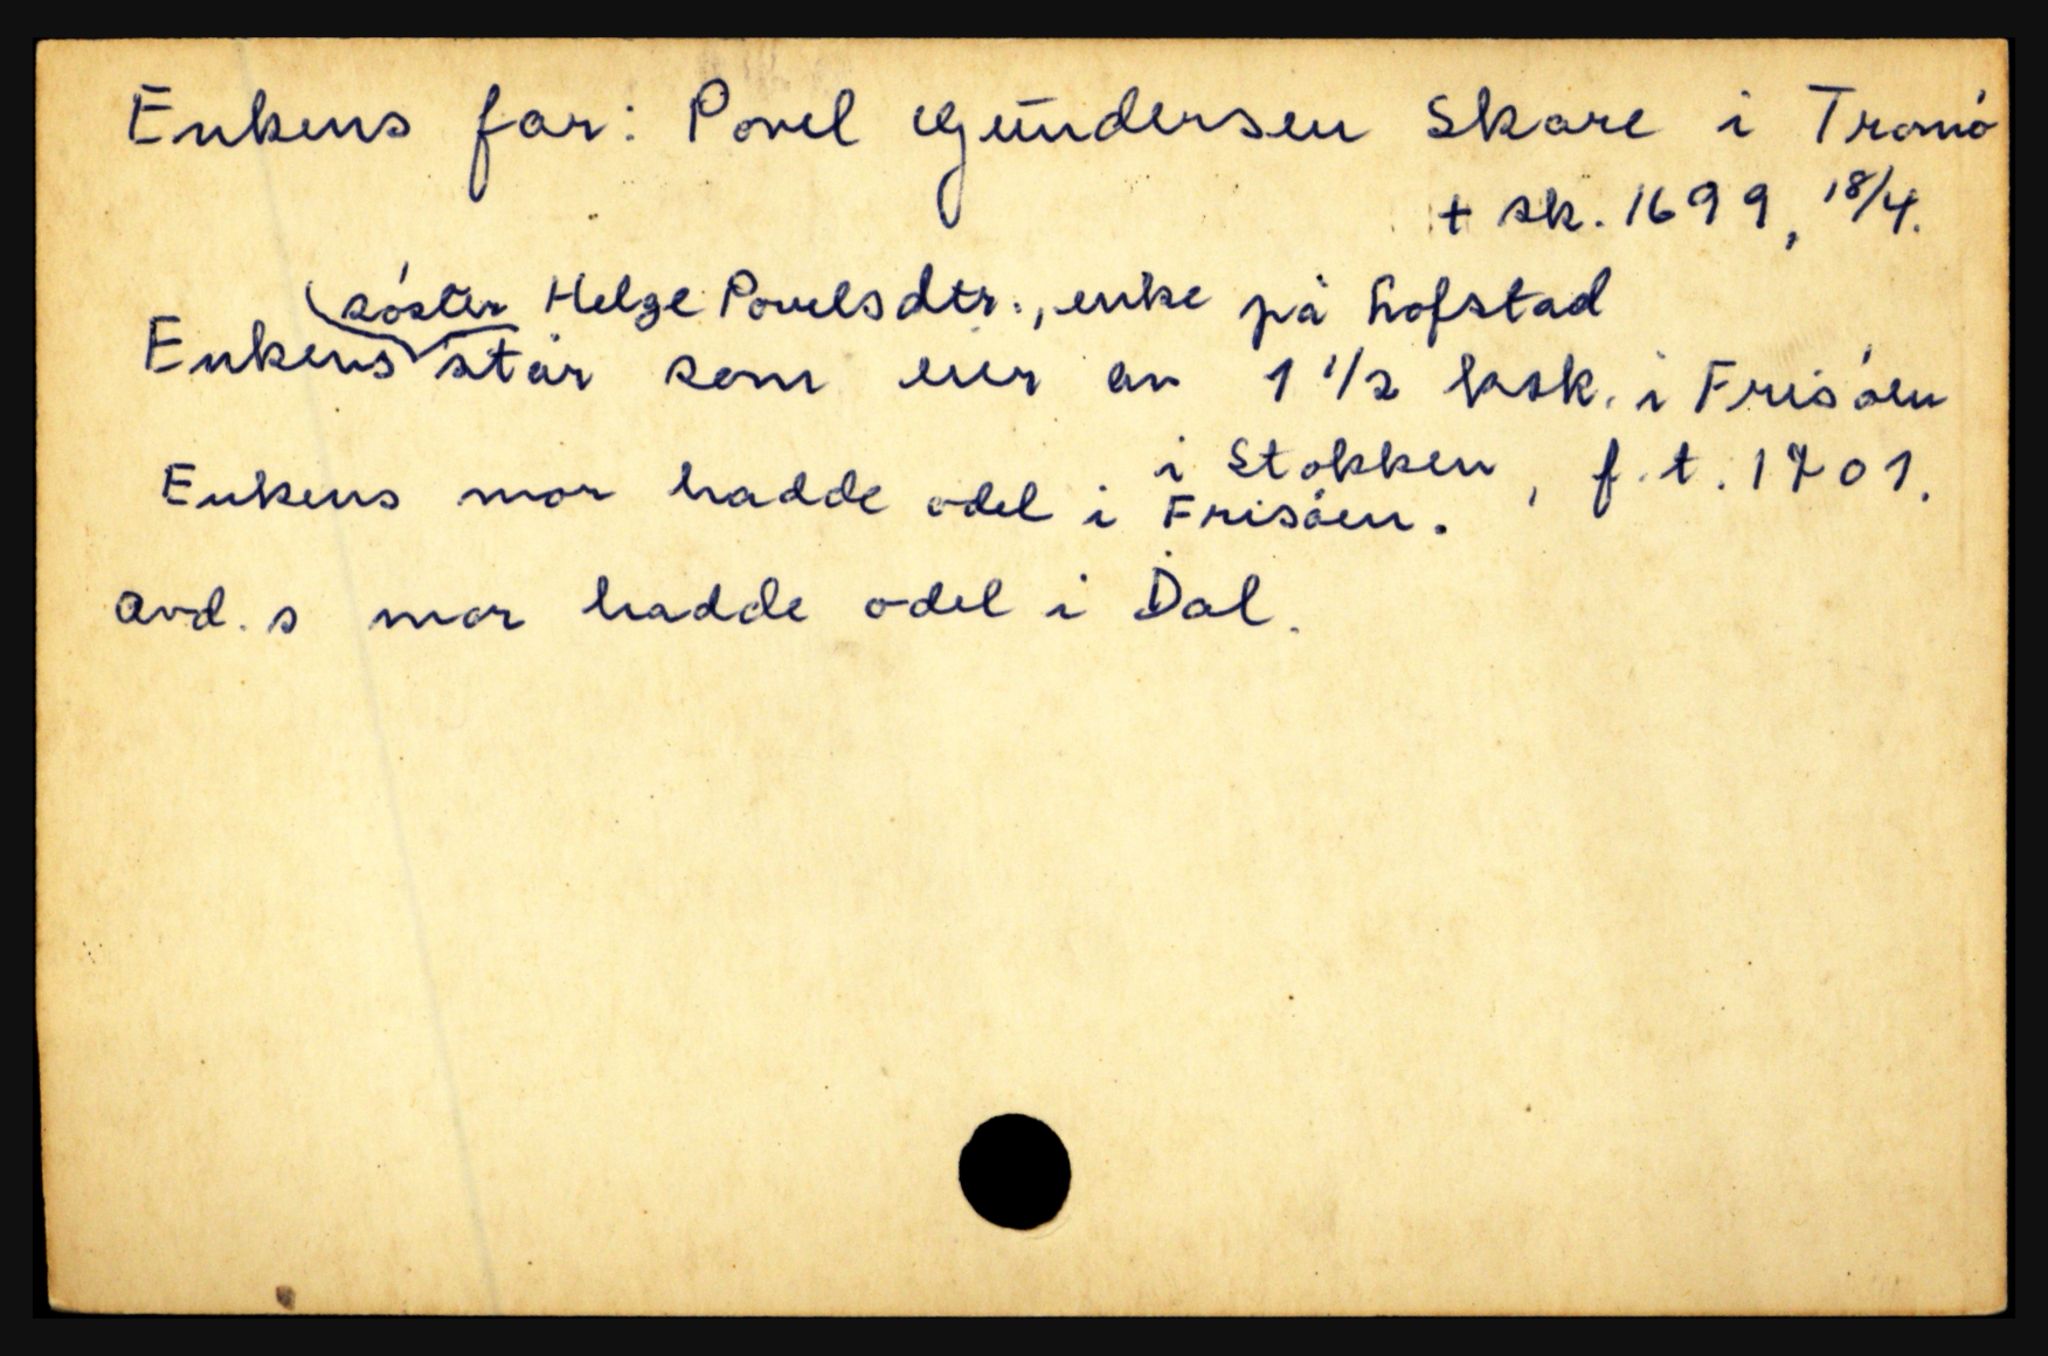 Enkens far: Povel Gundersen Skare i Tromö
+ sk. 1699, 18/4.
söster Helge Povelsdtr., enke på Lofstad
Enkens står som eier av 1 1/2 ksk. i Frisöen
i Stokken, f. t. 1701.
Enkens mor hadde odel i Frisöen.
avd. s mor hadde odel i Dal.